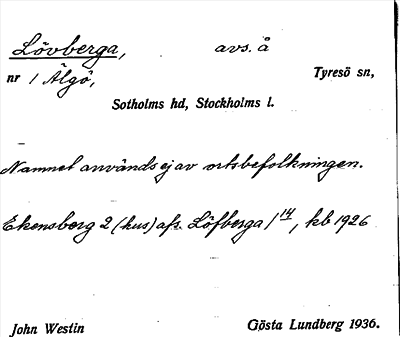 Lövberga, avs. å
nr 1 Älgö, Tyresö sn,
Sotholms hd, Stockholms l.
Namnet användes ej av ortsbefolkningen.
Ekensberg 2 (hus) afs. Löfberga 1 14, kb 1926
John Westin Gösta Lundberg 1936.